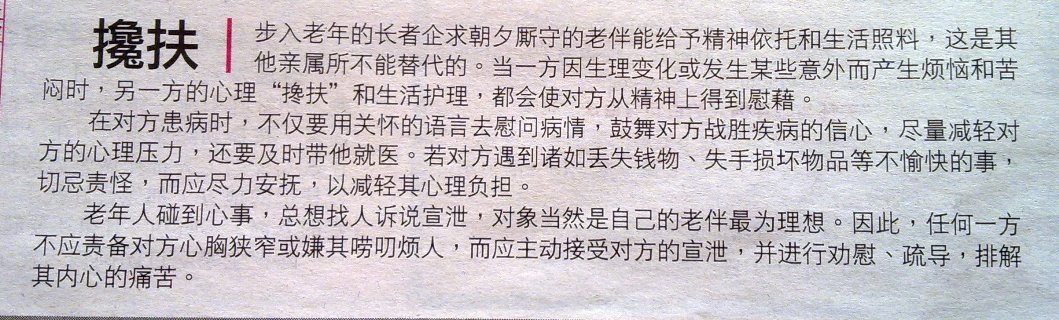 攙扶
步入老年的长者企求朝夕厮守的老伴能给予精神依托和生活照料，这是其
他亲属所不能替代的。当一方因生理变化或发生某些意外而产生烦恼和苦
闷时，另一方的心理“搀扶”和生活护理，都会使对方从精神上得到慰藉。
在对方患病时，不仅要用关怀的语言去慰问病情，鼓舞对方战胜疾病的信心，尽量减轻对
方的心理压力，还要及时带他就医。若对方遇到诸如丢失钱物、失手损坏物品等不愉快的事，
切忌责怪，而应尽力安抚，以减轻其心理负担。
老年人碰到心事，总想找人诉说宣泄，对象当然是自己的老伴最为理想。因此，任何一方
不应责备对方心胸狭窄或嫌其唠叨烦人，而应主动接受对方的宣泄，并进行劝慰、疏导，排解
其内心的痛苦。